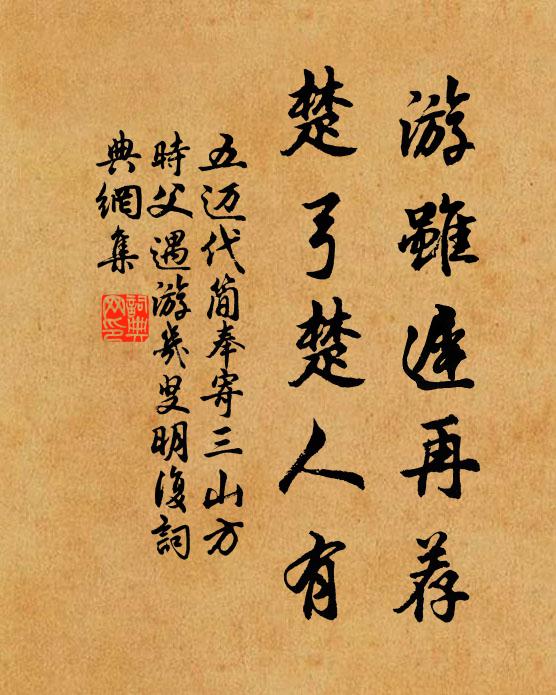 游雖遲再荐
楚弓楚人有
五迈代简奉寄三山方
時父遇游㡬叟明復詞
典網集
詞典網印